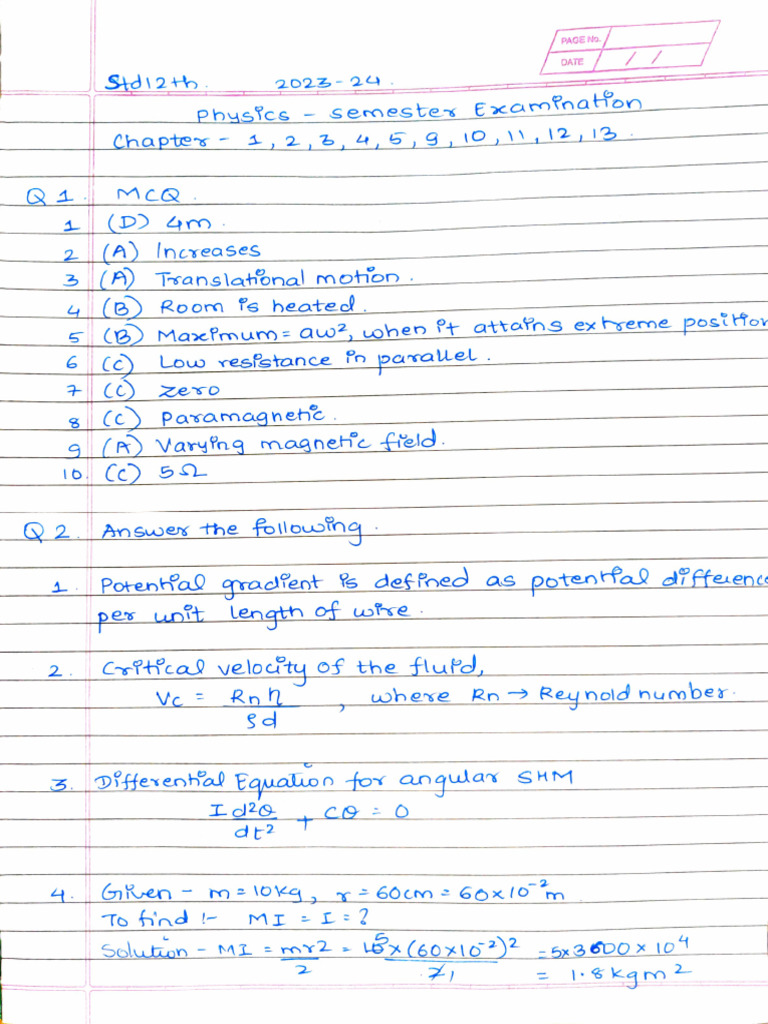 PAGE No.
DATE / /
Std 12th. 2023-24.
Physics - Semester Examination
Chapter - 1, 2, 3, 4, 5, 9, 10, 11, 12, 13.
Q 1. MCQ
1 (D) 4m.
2 (A) Increases
3 (A) Translational motion.
4 (B) Room is heated.
5 (B) Maximum = aω², when it attains extreme position
6 (C) Low resistance in parallel.
7 (C) zero
8 (C) Paramagnetic.
9 (A) Varying magnetic field.
10. (C) 5Ω
Q 2. Answer the following.
1. Potential gradient is defined as potential difference
per unit length of wire.
2. Critical velocity of the fluid,
Vc = Rn η / ρd , where Rn → Reynold number.
3. Differential Equation for angular SHM
I d²θ / dt² + cθ = 0
4. Given - m = 10kg, r = 60cm = 60×10⁻² m
To find :- MI = I = ?
Solution - MI = mr2 / 2 = 10 5 × (60×10⁻²)² / 2 1 = 5×3600 × 10⁴
= 1.8 kgm²